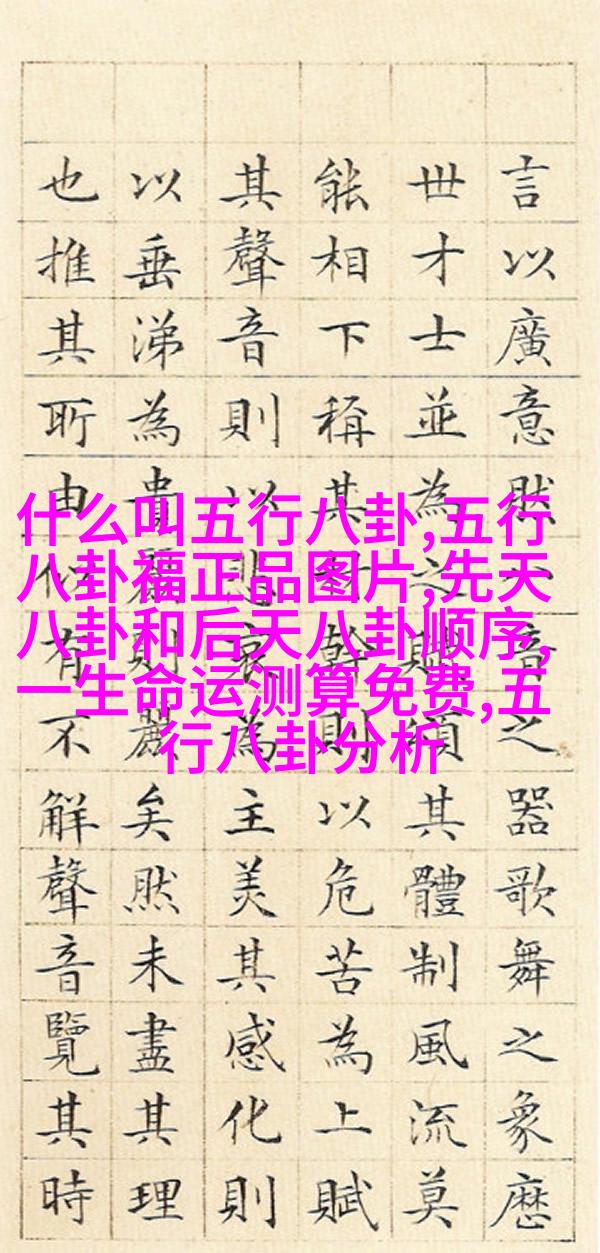 言以廣意然音之器歌舞之象歷
世才士並為之賦頌其體制風流莫
能相下稱其幹則以危苦為上賦
其聲音則以悲哀為主美其感化則
以垂涕為貴麗則麗矣然未盡其理
也推其所由似有不解聲音覽其時
什么叫五行八卦,五行
八卦福正品图片,先天
八卦和后天八卦顺序,
一生命运测算免费,五
行八卦分析